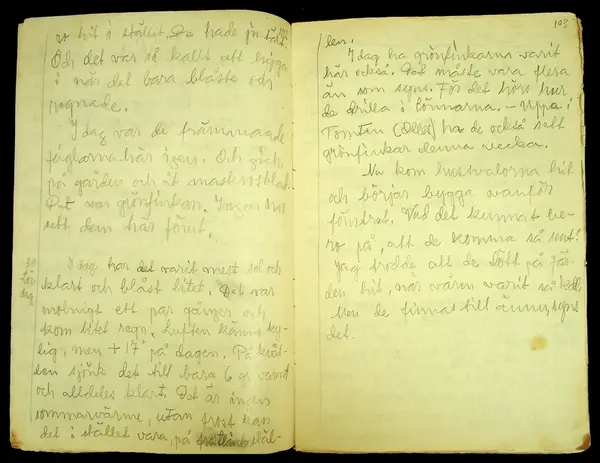 ro hit i stället. De hade ju
Och det var så kallt att ligga
i när det bara blåste och
regnade.
I dag var de främmande
fåglarna här igen. Och gick
på gården och åt maskrosblad.
Det var grönfinkan. Ingen har
sett dem här förut.
30
Lör
dag
I dag har det varit mest sol och
klart och blåst litet. Det var
molnigt ett par gånger och
kom litet regn. Luften kännes ky-
lig, men +17° på dagen. På kväl-
len sjönk det till bara 6 gr varmt
och alldeles klart. Det är ingen
sommarvärme, utan frost kan
det i stället vara, på släl-
103
len.
I dag ha grönfinkarna varit
här också. Det måste vara flera
än som syns. För det hörs hur
de drilla i lönnarna. – Uppe i
Tomten (Olles) ha de också sett
grönfinkar denna vecka.
Nu kom hussvalorna hit
och börjar bygga ovanför
fönstret. Vad det kunnat be-
ro på, att de komma så sent?
Jag trodde att de dött på fär-
den hit, när våren varit så kall.
Men de finnas till ännu, syns
det.